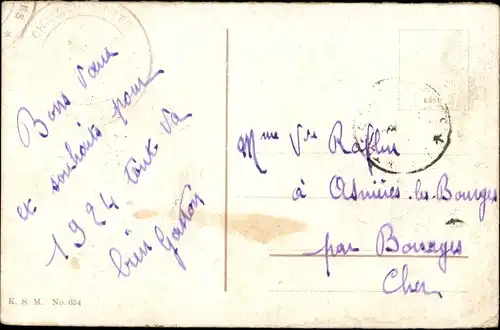 Bons vœux
et souhaits pour
1924 tout va
bien Gaston
Mme Vve Raflin
à Asnières-les-Bourges
par Bourges
Cher
K. S. M. No. 654